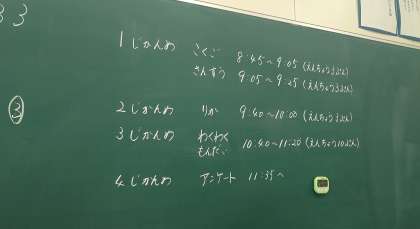 33
1じかんめ こくご 8:45~9:05 (えんちょう5ふん)
さんすう 9:05~9:25 (えんちょう5ふん)
③
2じかんめ りか 9:40~10:00 (えんちょう5ふん)
3じかんめ わくわく
もんだい 10:40~11:20 (えんちょう10ぷん)
4じかんめ アンケート 11:35~